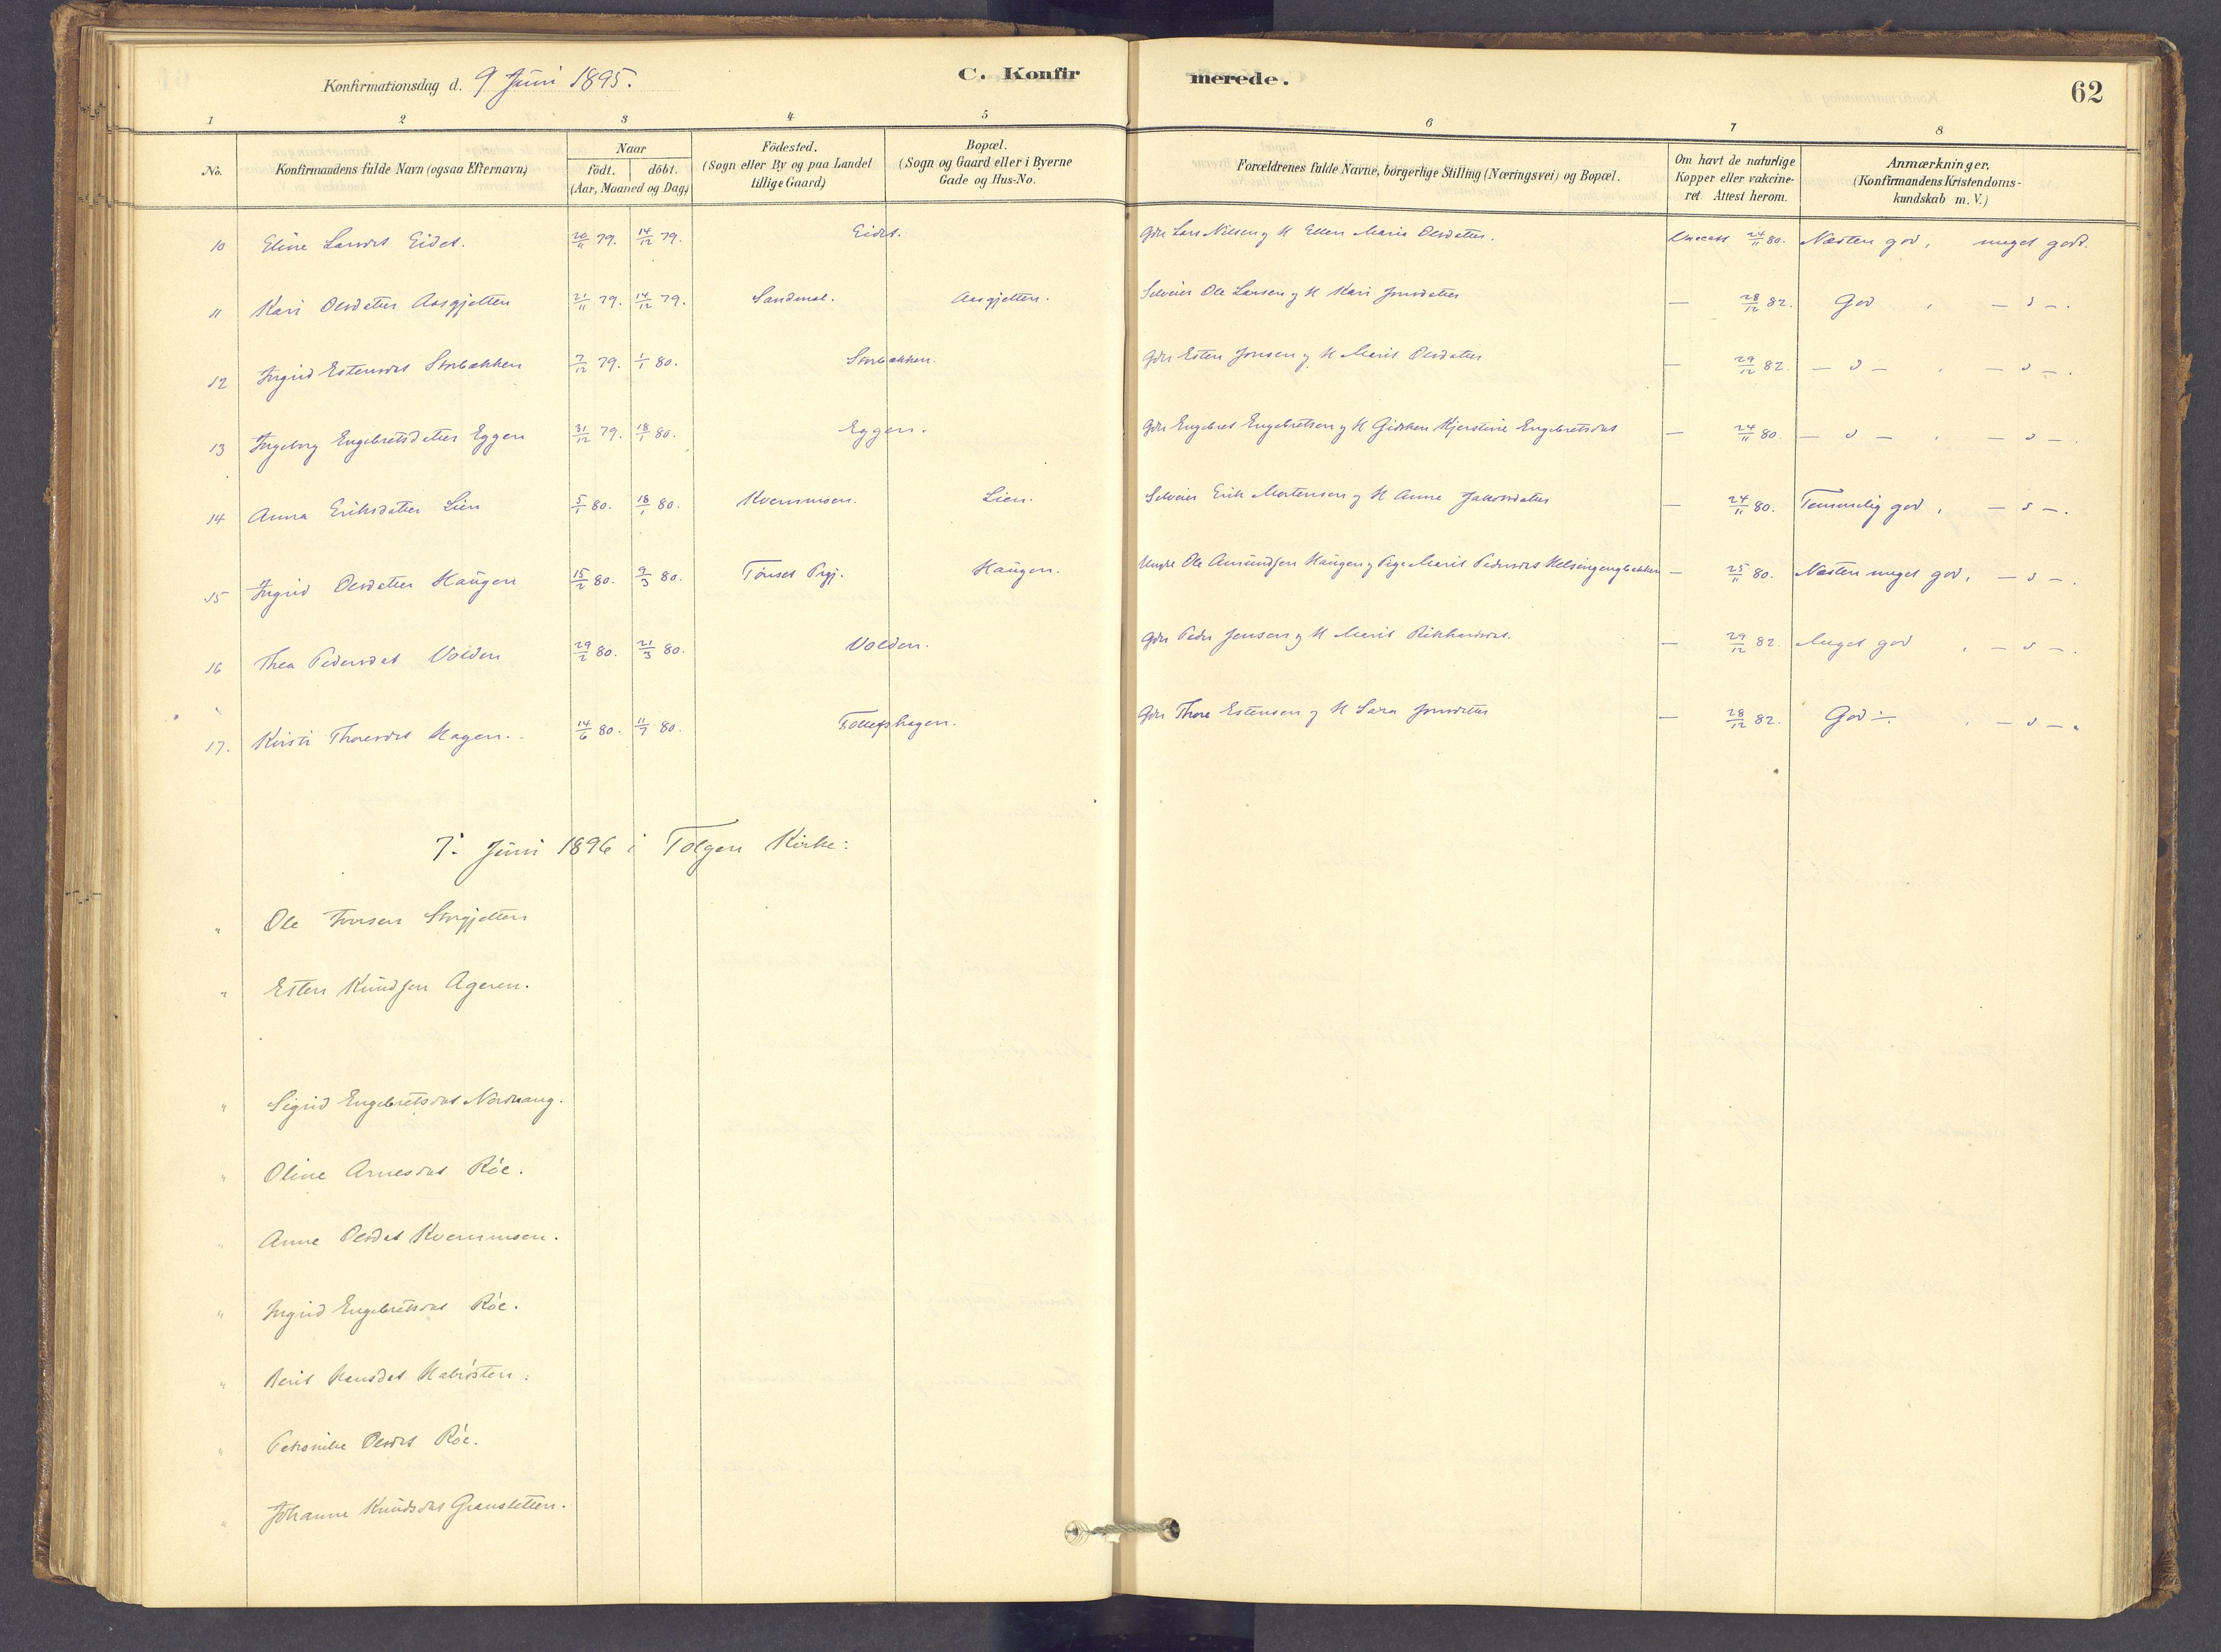 Konfirmationsdag d. 9 Juni 1895.
C. Konfirmerede.
62
1 2 3 4 5 6 7 8
No.
Konfirmandens fulde Navn (ogsaa Efternavn)
Naar
födt. döbt.
(Aar, Maaned og Dag)
Födested.
(Sogn eller By og paa Landet
tillige Gaard)
Bopæl.
(Sogn og Gaard eller i Byerne
Gade og Hus-No.
Forældrenes fulde Navne, borgerlige Stilling (Næringsvei) og Bopæl.
Om havt de naturlige
Kopper eller vakcine-
ret Attest herom.
Anmærkninger,
(Konfirmandens Kristendoms-
kundskab m. V.)
10 Eline Larsdt Eidet. 20/11 79. 14/12 79. Eidet. Gdr Lars Nilsen og H Ellen Maria Olsdatter. 24/11 80. Næsten god, meget godt.
11 Kari Olsdatter Aasgjetten 21/11 79. 14/12 79. Sandmal. Aasgjetten. Selveier Ole Larsen og H Kari Jonsdatter — 28/12 82. God, — " —.
12 Ingrid Estensdt Storbækken 7/12 79. 1/1 80. Storbækken. Gdr Esten Jonsen og H Marit Olsdatter — 29/12 82. — " —, — " —.
13 Ingeborg Engebretsdatter Eggen 31/12 79. 18/1 80. Eggen. Gdr Engebret Engebretsen og H Gidsken Kjerstine Engebretsdat — 24/11 80. — " —, — " —.
14 Anna Eriksdatter Lien 5/1 80. 18/1 80. Kvernmoen. Lien. Selveier Erik Mortensen og H Anne Jakobsdatter — 24/11 80. Temmelig god, — " —.
15 Ingrid Olsdatter Haugen 15/2 80. 9/3 80. Tönset Prgj. Haugen. Ungkr Ole Amundsen Haugen og Pige Marit Pedersdt Helsingengbakken — 25/11 80. Næsten meget god, — " —.
16 Thea Pedersdat Volden 29/2 80. 21/3 80. Volden. Gdr Peder Jensen og H Marit Rikhardsdt. — 29/12 82. Meget god, — " —.
17. Kirsti Thoresdt Hagen. 14/6 80. 11/7 80. Gdr Thore Estensen og H Sara Jonsdatter — 28/12 82. God ÷. , — " —.
7. Juni 1896 i Tolgen Kirke:
" Ole Iversen Storgjetten
" Esten Knudsen Ageren.
" Sigrid Engebretsdat Nordvang.
" Oline Arnesdat Röe.
" Anne Olsdat Kvernmoen.
" Ingrid Engebretsdat Röe.
" Berit Hansdat
" Petronille Olsdt Röe.
" Johanne Knudsdat Granstetten.